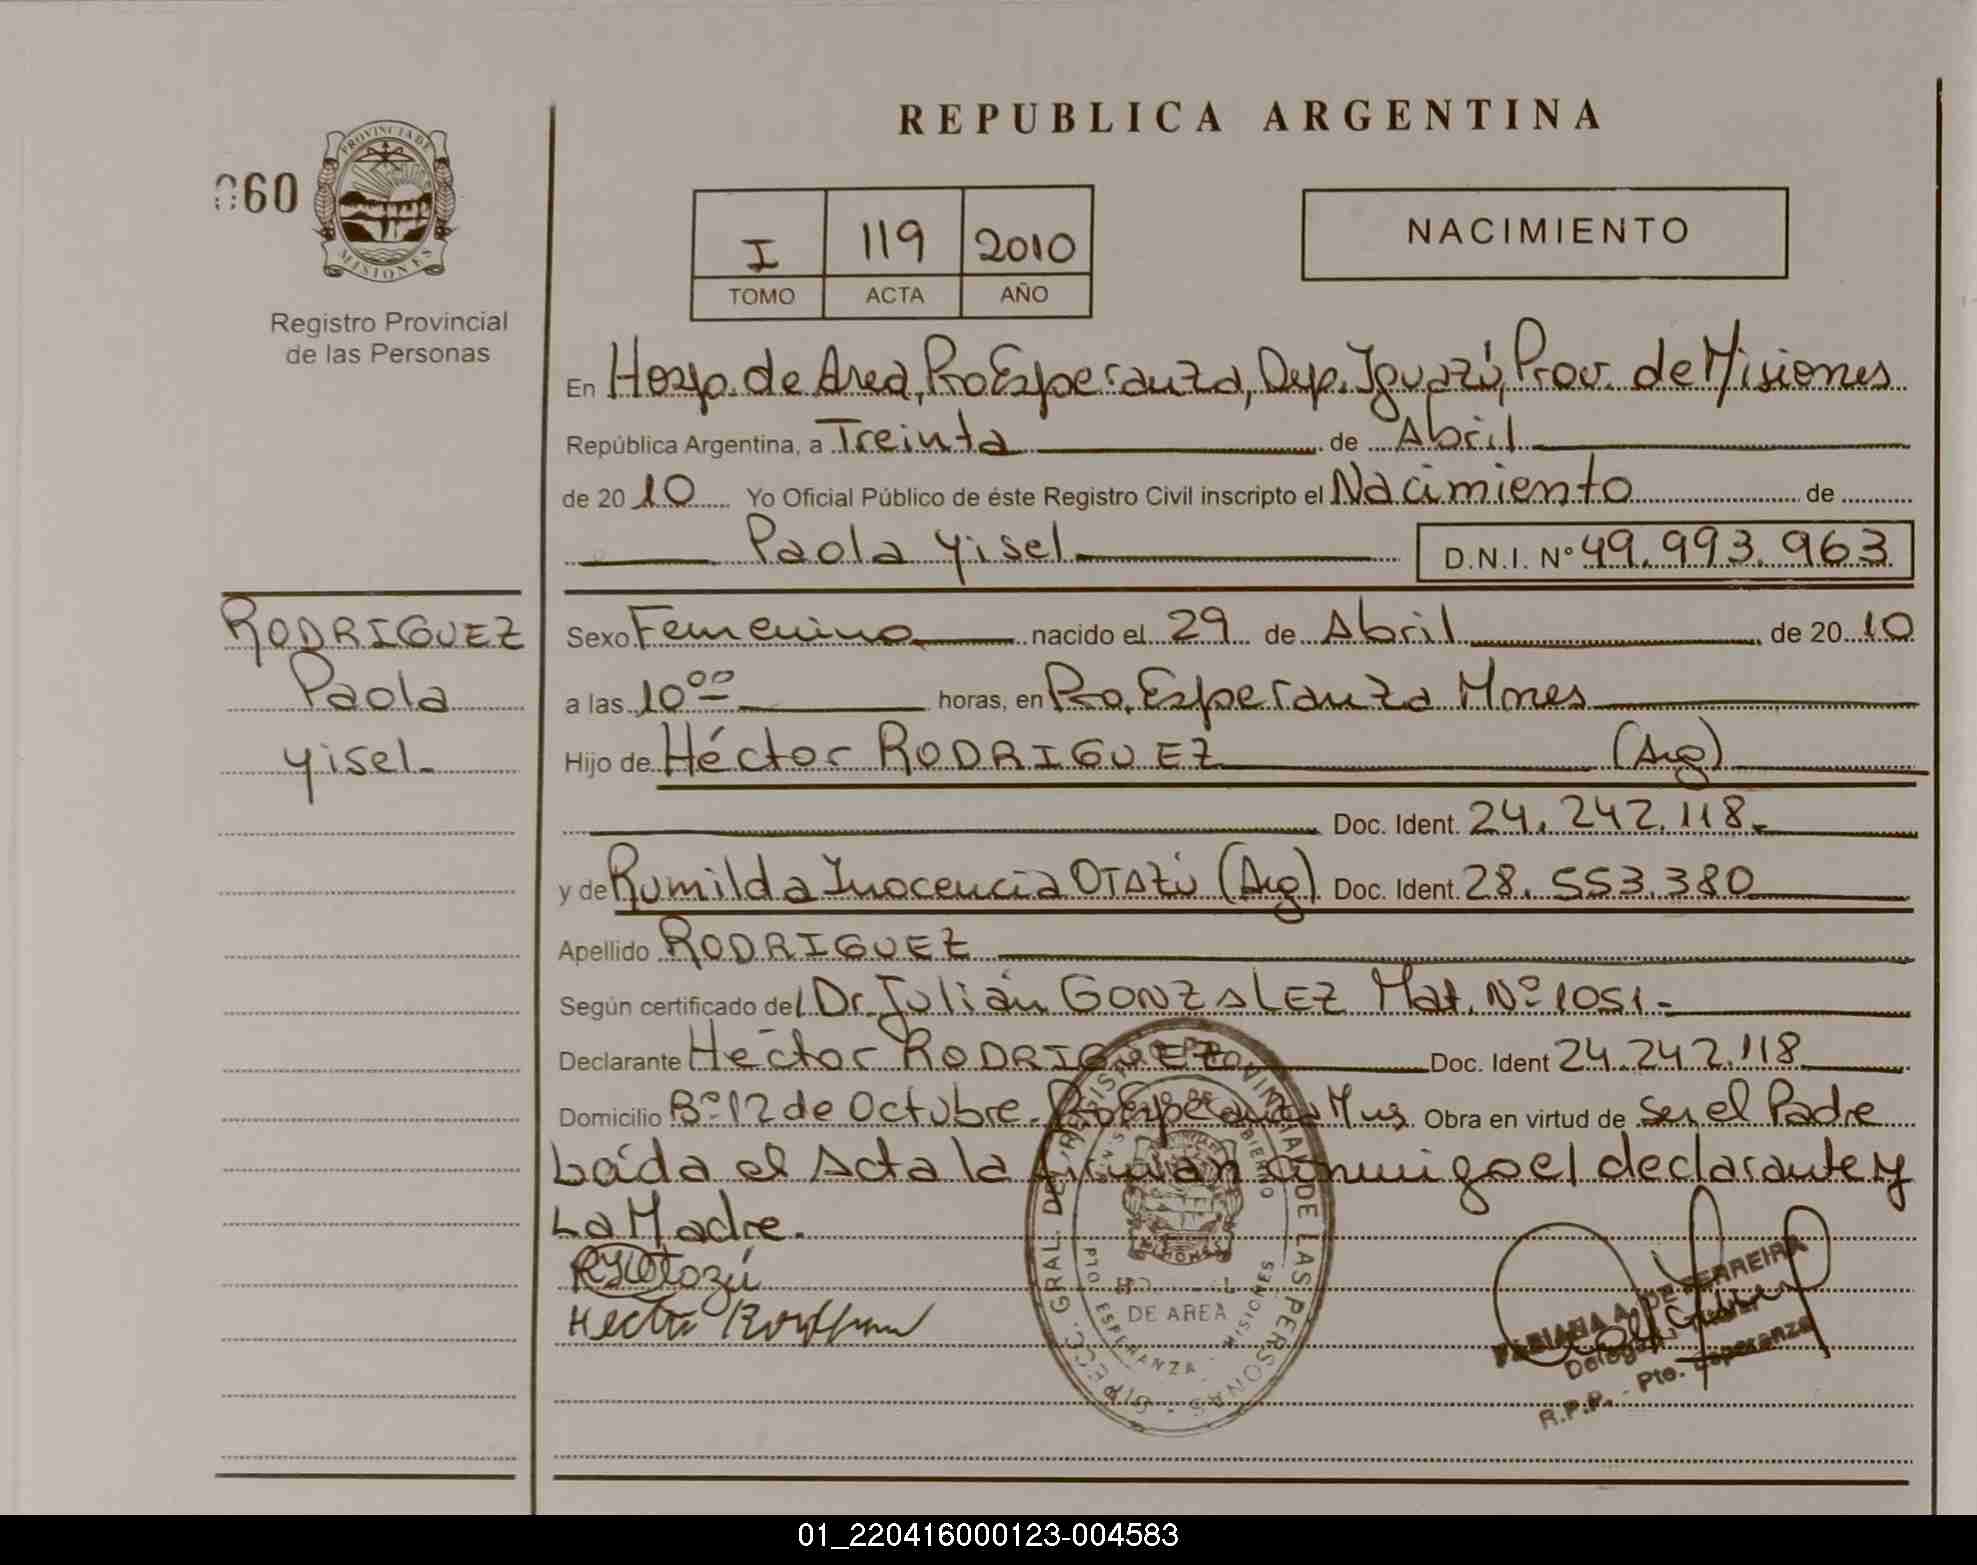 REPUBLICA ARGENTINA
060
PROVINCIA DE
MISIONES
Registro Provincial
de las Personas
I 119 2010
TOMO ACTA AÑO
NACIMIENTO
En Hosp. de Area, Pto Esperanza, Dep. Iguazú, Prov. de Misiones
República Argentina, a Treinta de Abril
de 2010 Yo Oficial Público de éste Registro Civil inscripto el Nacimiento de
Paola Yisel D.N.I. Nº 49.993.963
RODRIGUEZ
Paola
Yisel
Sexo Femenino nacido el 29 de Abril de 2010
a las 10 00 horas, en Pto. Esperanza Mnes
Hijo de Héctor RODRIGUEZ (Arg)
Doc. Ident. 24.242.118.
y de Rumilda Inocencia OTAZÚ (Arg) Doc. Ident. 28.553.380
Apellido RODRIGUEZ
Según certificado del Dr. Julián GONZALEZ Mat. Nº 1051.
Declarante Héctor RODRIGUEZ Doc. Ident 24.242.118
Domicilio Bº 12 de Octubre. Pto Esperanza Mns Obra en virtud de Ser el Padre
Leída el Acta la firman conmigo el declarante y
La Madre.
Otazú
Hector
DIRECC. GRAL. DEL REGISTRO PROVINCIAL DE LAS PERSONAS
MISIONES
DE AREA
PTO ESPERANZA - MISIONES
FABIANA A. DE FERREIRA
R.P.P. - Pto. Esperanza
01_220416000123-004583